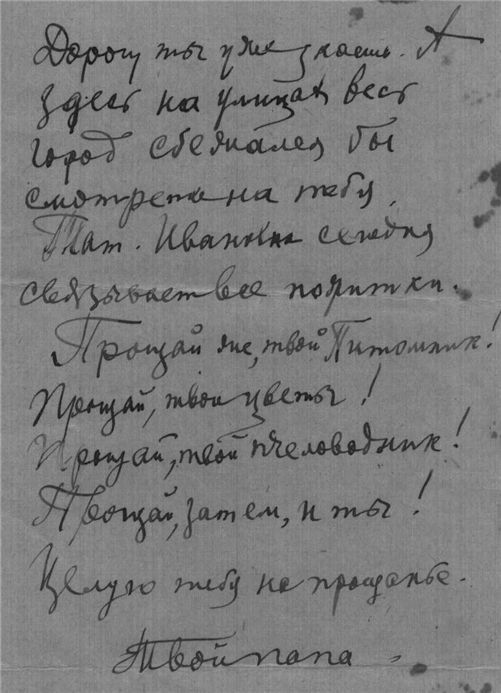 Дорогу ты уже знаешь. А
здесь на улицах весь
город сбежался бы
смотреть на тебя.
Тат. Ивановна сегодня
связывает все пожитки.
Прощай же, твой Питомник!
Прощай, твои цветы!
Прощай, твой пчеловодник!
Прощай, затем, и ты!
Целую тебя на прощанье.
Твой папа